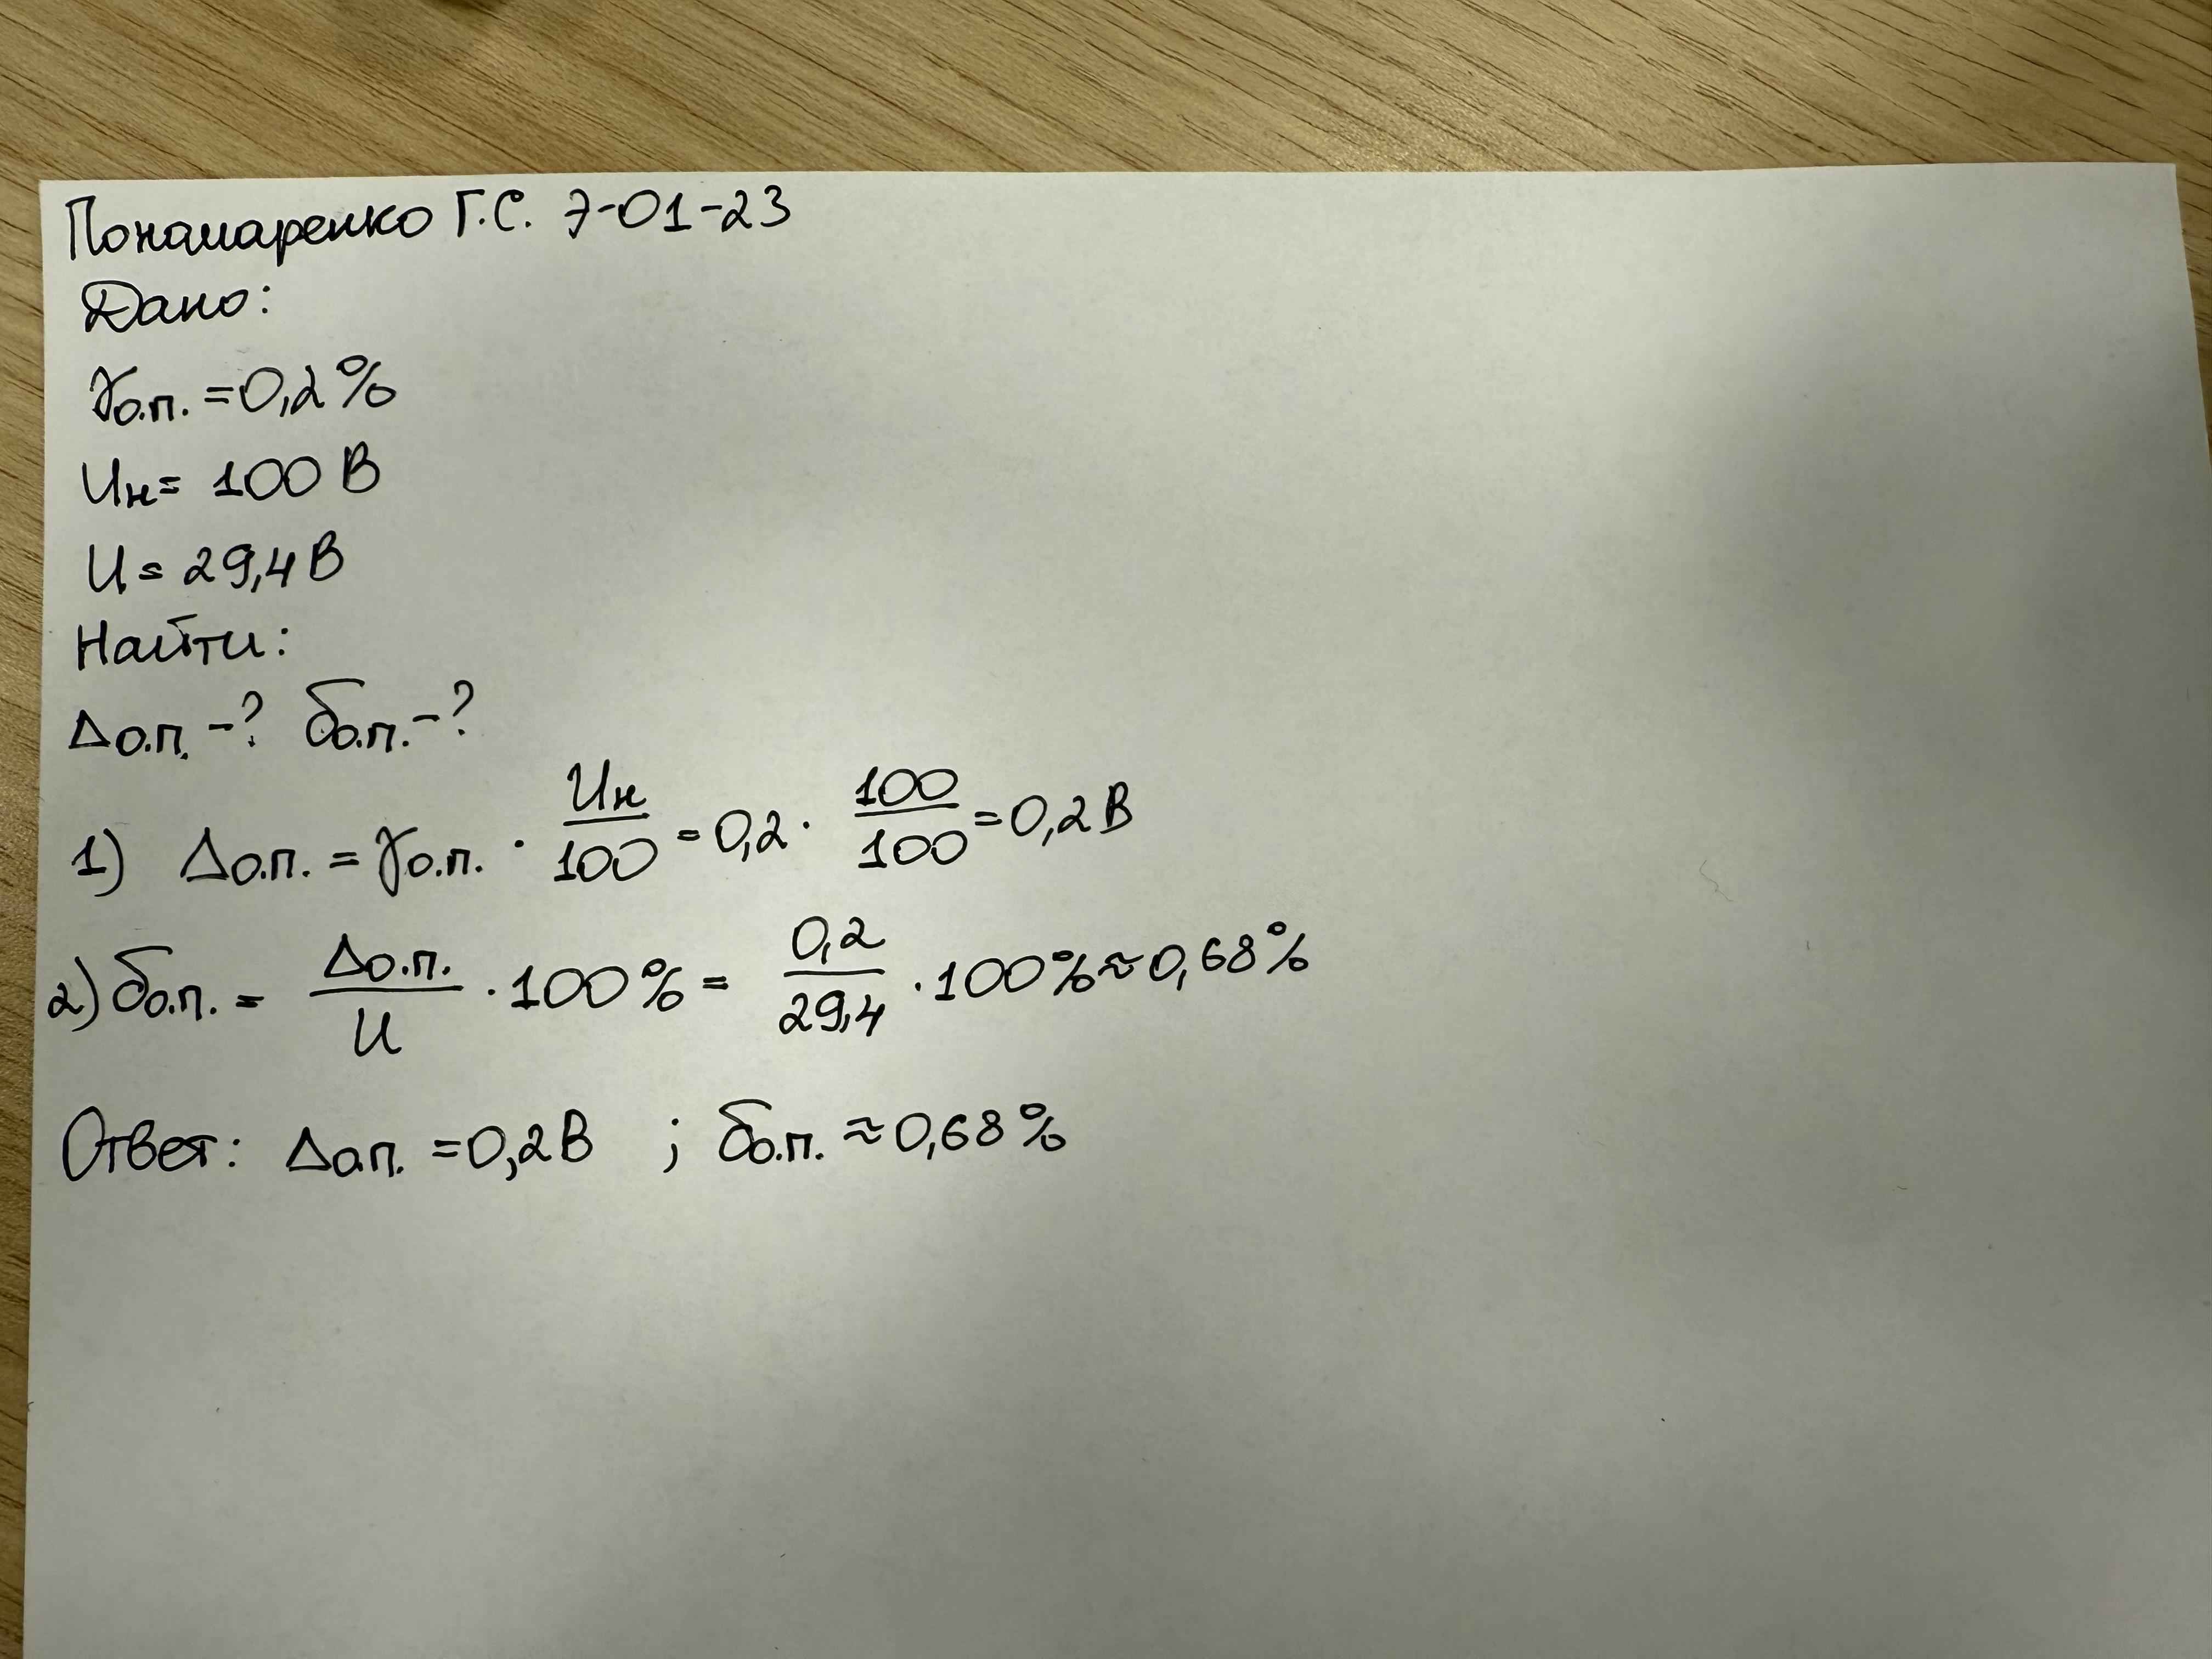 Понамаренко Г.С. Э-01-23
Дано:
γо.п. = 0,2%
Uн = 100 В
U = 29,4 В
Найти:
Δо.п. -? δо.п. -?
1) Δо.п. = γо.п. · Uн/100 = 0,2 · 100/100 = 0,2 В
2) δо.п. = Δо.п./U · 100% = 0,2/29,4 · 100% ≈ 0,68%
Ответ: Δо.п. = 0,2 В ; δо.п. ≈ 0,68%